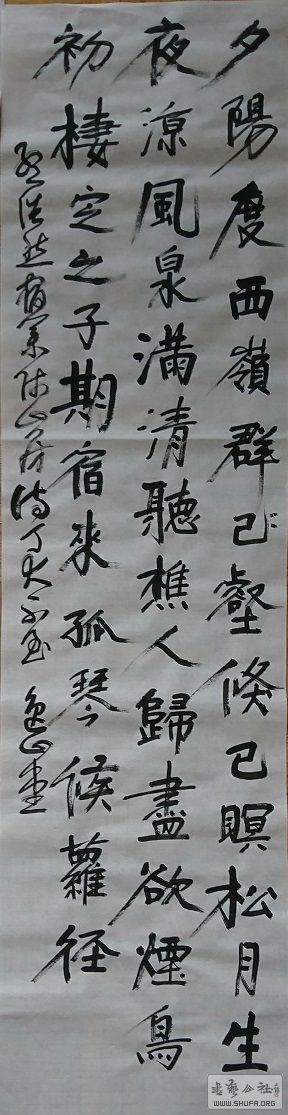 夕陽度西嶺群已壑倏已暝松月生
夜涼風泉滿清聽樵人歸盡欲煙鳥
初棲定之子期宿來孤琴候蘿径
孟浩然宿業师山房待丁大不至
書藝公社
WWW.SHUFA.ORG